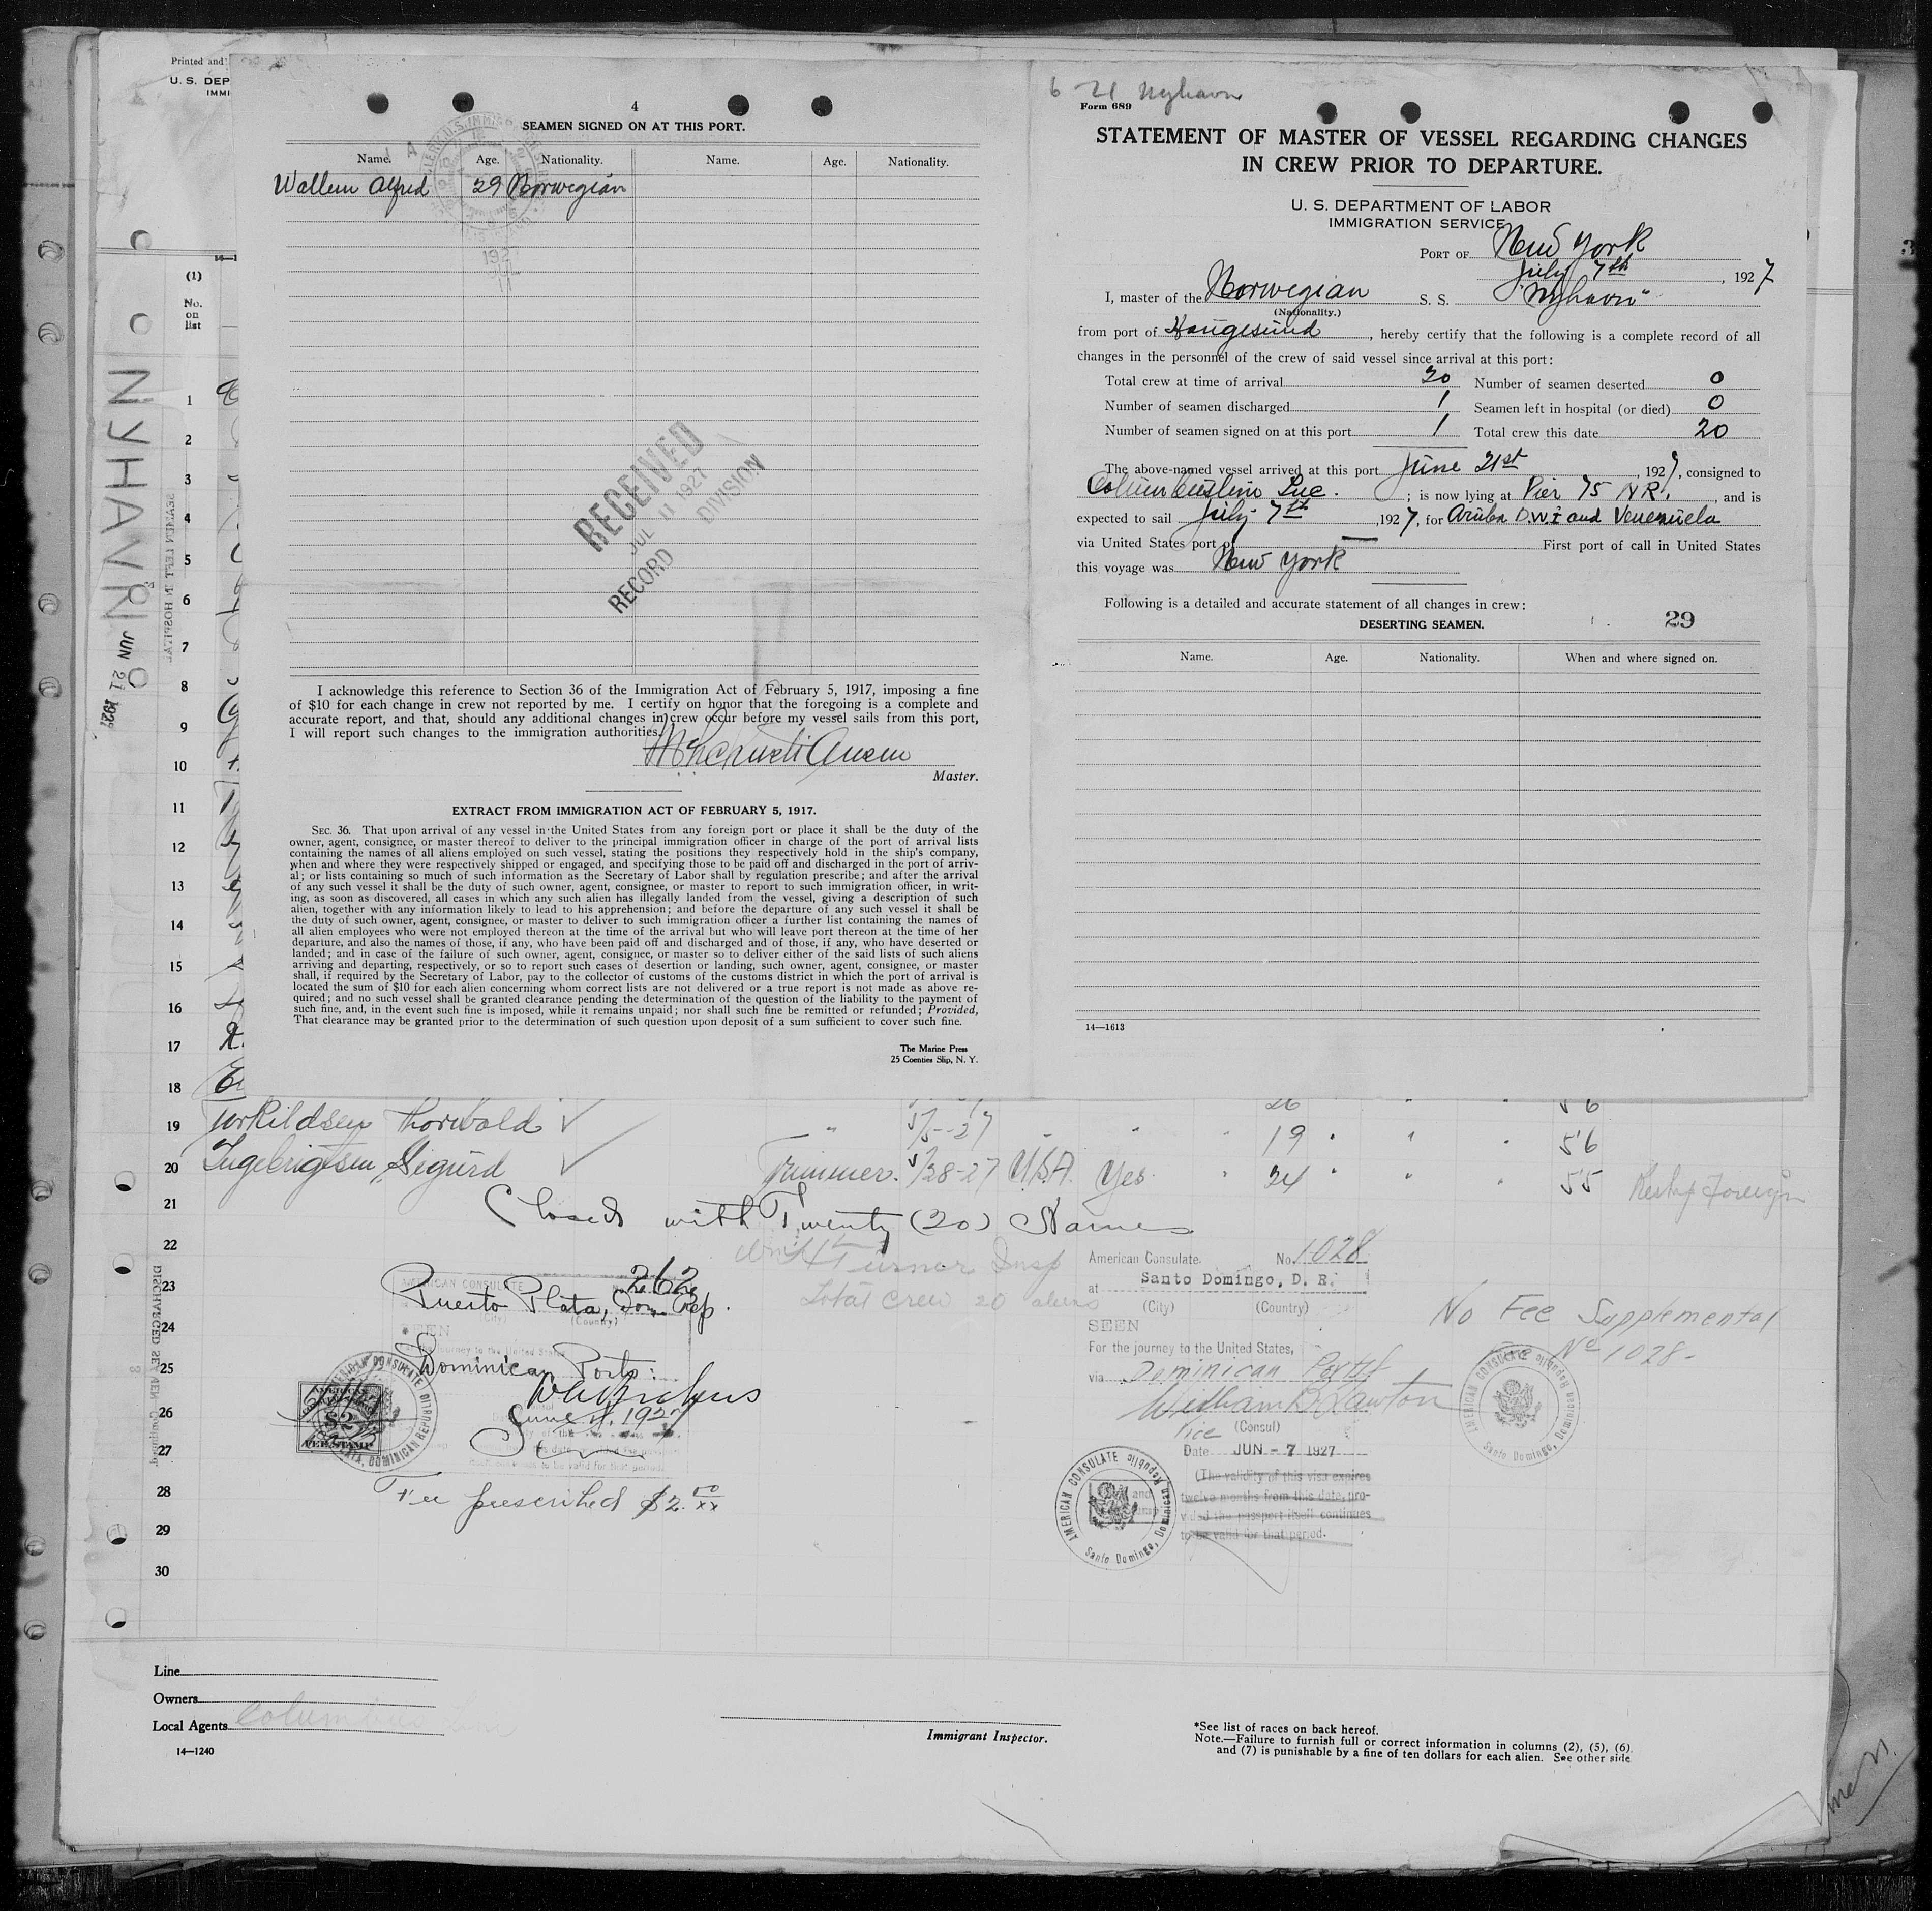 Printed and
U. S. DEP
IMMI
4
SEAMEN SIGNED ON AT THIS PORT.
Name. Age. Nationality. Name. Age. Nationality.
Wallem Alfred 29 Norwegian
1927
JUL
11
RECEIVED
JUL 11 1927
RECORD DIVISION
I acknowledge this reference to Section 36 of the Immigration Act of February 5, 1917, imposing a fine
of $10 for each change in crew not reported by me. I certify on honor that the foregoing is a complete and
accurate report, and that, should any additional changes in crew occur before my vessel sails from this port,
I will report such changes to the immigration authorities.
Master.
EXTRACT FROM IMMIGRATION ACT OF FEBRUARY 5, 1917.
SEC. 36. That upon arrival of any vessel in the United States from any foreign port or place it shall be the duty of the
owner, agent, consignee, or master thereof to deliver to the principal immigration officer in charge of the port of arrival lists
containing the names of all aliens employed on such vessel, stating the positions they respectively hold in the ship's company,
when and where they were respectively shipped or engaged, and specifying those to be paid off and discharged in the port of arriv-
al; or lists containing so much of such information as the Secretary of Labor shall by regulation prescribe; and after the arrival
of any such vessel it shall be the duty of such owner, agent, consignee, or master to report to such immigration officer, in writ-
ing, as soon as discovered, all cases in which any such alien has illegally landed from the vessel, giving a description of such
alien, together with any information likely to lead to his apprehension; and before the departure of any such vessel it shall be
the duty of such owner, agent, consignee, or master to deliver to such immigration officer a further list containing the names of
all alien employees who were not employed thereon at the time of the arrival but who will leave port thereon at the time of her
departure, and also the names of those, if any, who have been paid off and discharged and of those, if any, who have deserted or
landed; and in case of the failure of such owner, agent, consignee, or master so to deliver either of the said lists of such aliens
arriving and departing, respectively, or so to report such cases of desertion or landing, such owner, agent, consignee, or master
shall, if required by the Secretary of Labor, pay to the collector of customs of the customs district in which the port of arrival is
located the sum of $10 for each alien concerning whom correct lists are not delivered or a true report is not made as above re-
quired; and no such vessel shall be granted clearance pending the determination of the question of the liability to the payment of
such fine, and, in the event such fine is imposed, while it remains unpaid; nor shall such fine be remitted or refunded; Provided,
That clearance may be granted prior to the determination of such question upon deposit of a sum sufficient to cover such fine.
The Marine Press
25 Coenties Slip, N. Y.
6 21 Nyhavn
Form 689
STATEMENT OF MASTER OF VESSEL REGARDING CHANGES
IN CREW PRIOR TO DEPARTURE.
U. S. DEPARTMENT OF LABOR
IMMIGRATION SERVICE
PORT OF New York
July 7th, 1927
I, master of the Norwegian S. S. "Nyhavn"
(Nationality.)
from port of Haugesund, hereby certify that the following is a complete record of all
changes in the personnel of the crew of said vessel since arrival at this port:
Total crew at time of arrival 20 Number of seamen deserted 0
Number of seamen discharged 1 Seamen left in hospital (or died) 0
Number of seamen signed on at this port 1 Total crew this date 20
The above-named vessel arrived at this port June 21st, 1927, consigned to
Columbusline Inc.; is now lying at Pier 75 N.R., and is
expected to sail July 7th, 1927, for Aruba D.W.I and Venezuela
via United States port of — First port of call in United States
this voyage was New York
Following is a detailed and accurate statement of all changes in crew:
29
DESERTING SEAMEN.
Name. Age. Nationality. When and where signed on.
14—1613
NYHAVN
JUN 21 1927
SEAMEN LEFT IN HOSPITAL
(1)
No.
on
list
1
2
3
4
5
6
7
8
9
10
11
12
13
14
15
16
17
18
26 " " 56
19 Torkildsen Thorwald ✓ " 5/5-27 " " " 19 " " " 5'6
20 Ingebrigtsen, Sigurd ✓ Trimmer. 5/28-27 USA. Yes " 24 " " " 55 Reshp foreign
21 Closed with Twenty (20) Names
22 Turner Insp
Total Crew 20 aliens
23 AMERICAN CONSULATE 262
Puerto Plata, Dom. Rep.
(City) (Country)
24 SEEN
For the journey to the United States
25 Dominican Ports:
26 June 11, 1927
27
28 Fee prescribed $2.00/xx
29
30
AMERICAN
$2
FEE STAMP
DISCHARGED SEAMEN
American Consulate. No. 1028
at Santo Domingo, D. R.
(City) (Country)
SEEN
For the journey to the United States,
via Dominican Ports
William B Lawton
Vice (Consul)
Date JUN - 7 1927
(The validity of this visa expires
twelve months from this date, pro-
vided the passport itself continues
to be valid for that period.
AMERICAN CONSULATE Santo Domingo, Dominican Republic
No Fee Supplemental
No 1028-
AMERICAN CONSULATE Santo Domingo, Dominican Republic
Line
Owners
Local Agents Columbus Line
14—1240
Immigrant Inspector.
*See list of races on back hereof.
Note.—Failure to furnish full or correct information in columns (2), (5), (6)
and (7) is punishable by a fine of ten dollars for each alien. See other side